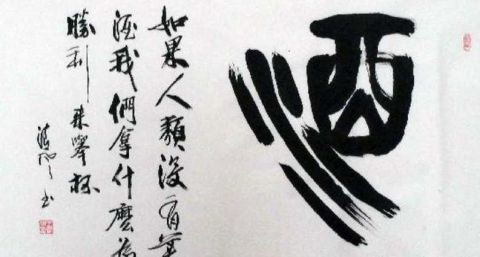 酒
如果人類沒有
酒我們拿什麼為
勝利來舉杯